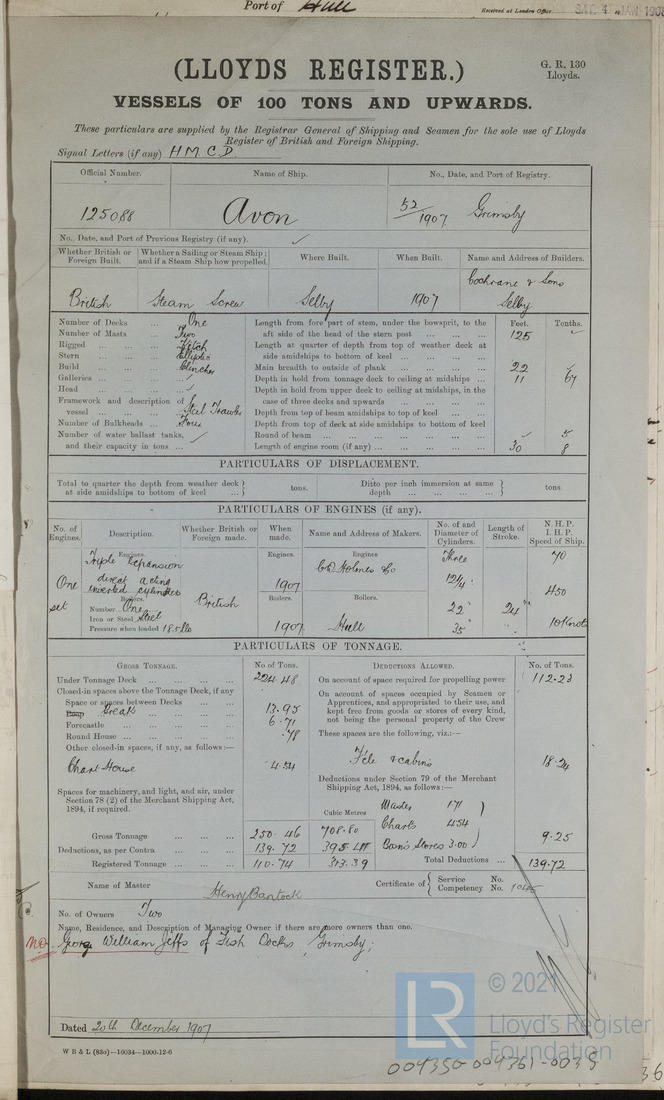 Port of Hull
Received at London Office SAT. 4 JAN 1908
(LLOYDS REGISTER.)
G. R. 130
Lloyds.
VESSELS OF 100 TONS AND UPWARDS.
These particulars are supplied by the Registrar General of Shipping and Seamen for the sole use of Lloyds
Register of British and Foreign Shipping.
Signal Letters (if any) H M C D
Official Number. Name of Ship. No., Date, and Port of Registry.
125088 Avon 52/1907 Grimsby
No., Date, and Port of Previous Registry (if any).
Whether British or Foreign Built. Whether a Sailing or Steam Ship; and if a Steam Ship how propelled. Where Built. When Built. Name and Address of Builders.
British Steam Screw Selby 1907 Cochrane & Sons Selby
Number of Decks ... One
Number of Masts ... Two
Rigged ... Ketch
Stern ... Elliptic
Build ... Clincher
Galleries ...
Head ...
Framework and description of vessel ... Steel Trawler
Number of Bulkheads ... Four
Number of water ballast tanks, and their capacity in tons ...
Feet. Tenths.
Length from fore part of stem, under the bowsprit, to the aft side of the head of the stern post ... 125
Length at quarter of depth from top of weather deck at side amidships to bottom of keel ...
Main breadth to outside of plank ... 22
Depth in hold from tonnage deck to ceiling at midships ... 11 67
Depth in hold from upper deck to ceiling at midships, in the case of three decks and upwards ...
Depth from top of beam amidships to top of keel ...
Depth from top of deck at side amidships to bottom of keel
Round of beam ... 5
Length of engine room (if any) ... 30 8
PARTICULARS OF DISPLACEMENT.
Total to quarter the depth from weather deck at side amidships to bottom of keel ... tons. Ditto per inch immersion at same depth ... tons
PARTICULARS OF ENGINES (if any).
No. of Engines. Description. Whether British or Foreign made. When made. Name and Address of Makers. No. of and Diameter of Cylinders. Length of Stroke. N. H. P. I. H. P. Speed of Ship.
Engines. Engines. Engines
Triple Expansion Three 70
One set direct acting inverted cylinders British 1907 C D Holmes & Co 12¼" 450
Boilers. Boilers. Boilers.
Number One
Iron or Steel Steel 22" 24"
Pressure when loaded 185 lbs 1907 Hull 35" 10 Knots
PARTICULARS OF TONNAGE.
GROSS TONNAGE. No of Tons. DEDUCTIONS ALLOWED. No. of Tons.
Under Tonnage Deck ... 224.48
Closed-in spaces above the Tonnage Deck, if any
Space or spaces between Decks ...
Poop Break ... 13.95
Forecastle ... 6.71
Round House ... .78
Other closed-in spaces, if any, as follows:—
Chart House 4.54
Spaces for machinery, and light, and air, under Section 78 (2) of the Merchant Shipping Act, 1894, if required.
On account of space required for propelling power 112.23
On account of spaces occupied by Seamen or Apprentices, and appropriated to their use, and kept free from goods or stores of every kind, not being the personal property of the Crew
These spaces are the following, viz.:—
F'cle & cabins 18.24
Deductions under Section 79 of the Merchant Shipping Act, 1894, as follows:—
Cubic Metres
Master 171
Charts 454
Bosn's Stores 3.00 9.25
Gross Tonnage ... 250.46 708.80
Deductions, as per Contra ... 139.72 395.41
Registered Tonnage ... 110.74 313.39
Total Deductions ... 139.72
Name of Master Henry Bantock
Certificate of Service No.
Competency No.
No. of Owners Two
Name, Residence, and Description of Managing Owner if there are more owners than one.
MO George William Jeffs of Fish Docks, Grimsby;
Dated 20th December 1907
W B & L (83o)—16034—1000-12-6
LR © 2021
Lloyd's Register
Foundation
004350-004361-0035
36